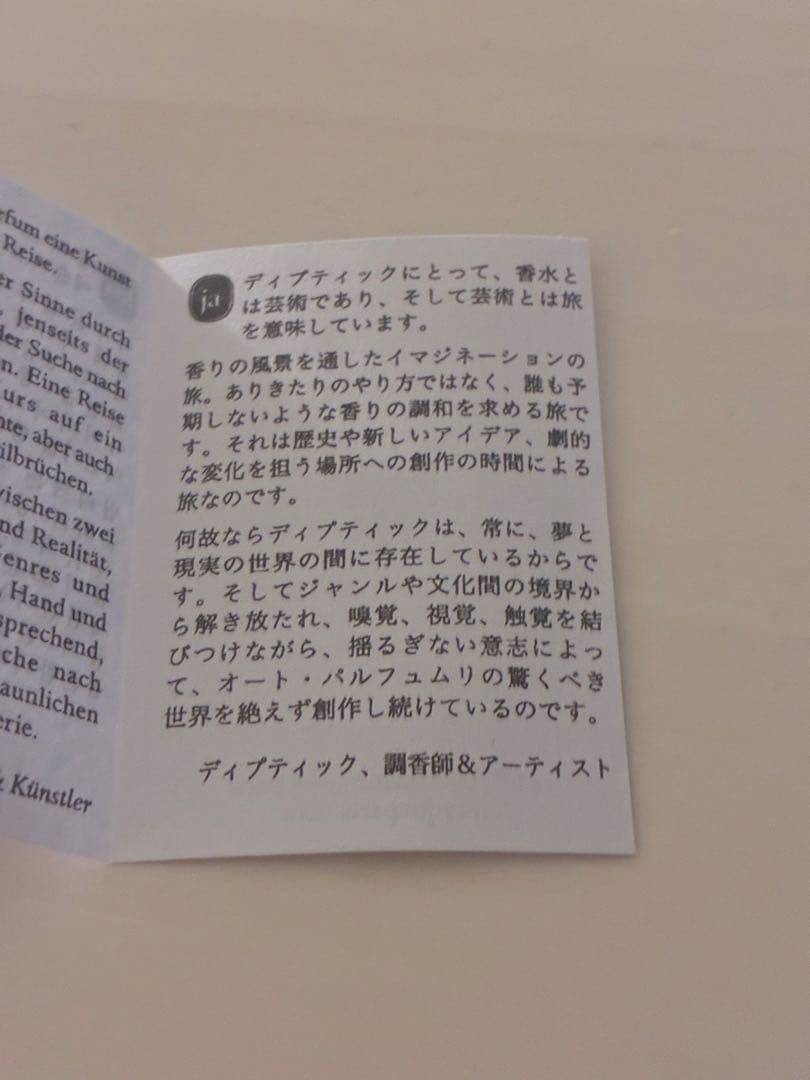 rfum eine Kunst
Reise.
er Sinne durch
jenseits der
der Suche nach
en. Eine Reise
urs auf ein
nte, aber auch
ilbrüchen.
wischen zwei
nd Realität,
Genres und
, Hand und
sprechend,
che nach
aunlichen
erie.
& Künstler
ja
ディプティックにとって、香水と
は芸術であり、そして芸術とは旅
を意味しています。
香りの風景を通したイマジネーションの
旅。ありきたりのやり方ではなく、誰も予
期しないような香りの調和を求める旅で
す。それは歴史や新しいアイデア、劇的
な変化を担う場所への創作の時間による
旅なのです。
何故ならディプティックは、常に、夢と
現実の世界の間に存在しているからで
す。そしてジャンルや文化間の境界か
ら解き放たれ、嗅覚、視覚、触覚を結
びつけながら、揺るぎない意志によっ
て、オート・パルフュムリの驚くべき
世界を絶えず創作し続けているのです。
ディプティック、調香師&アーティスト